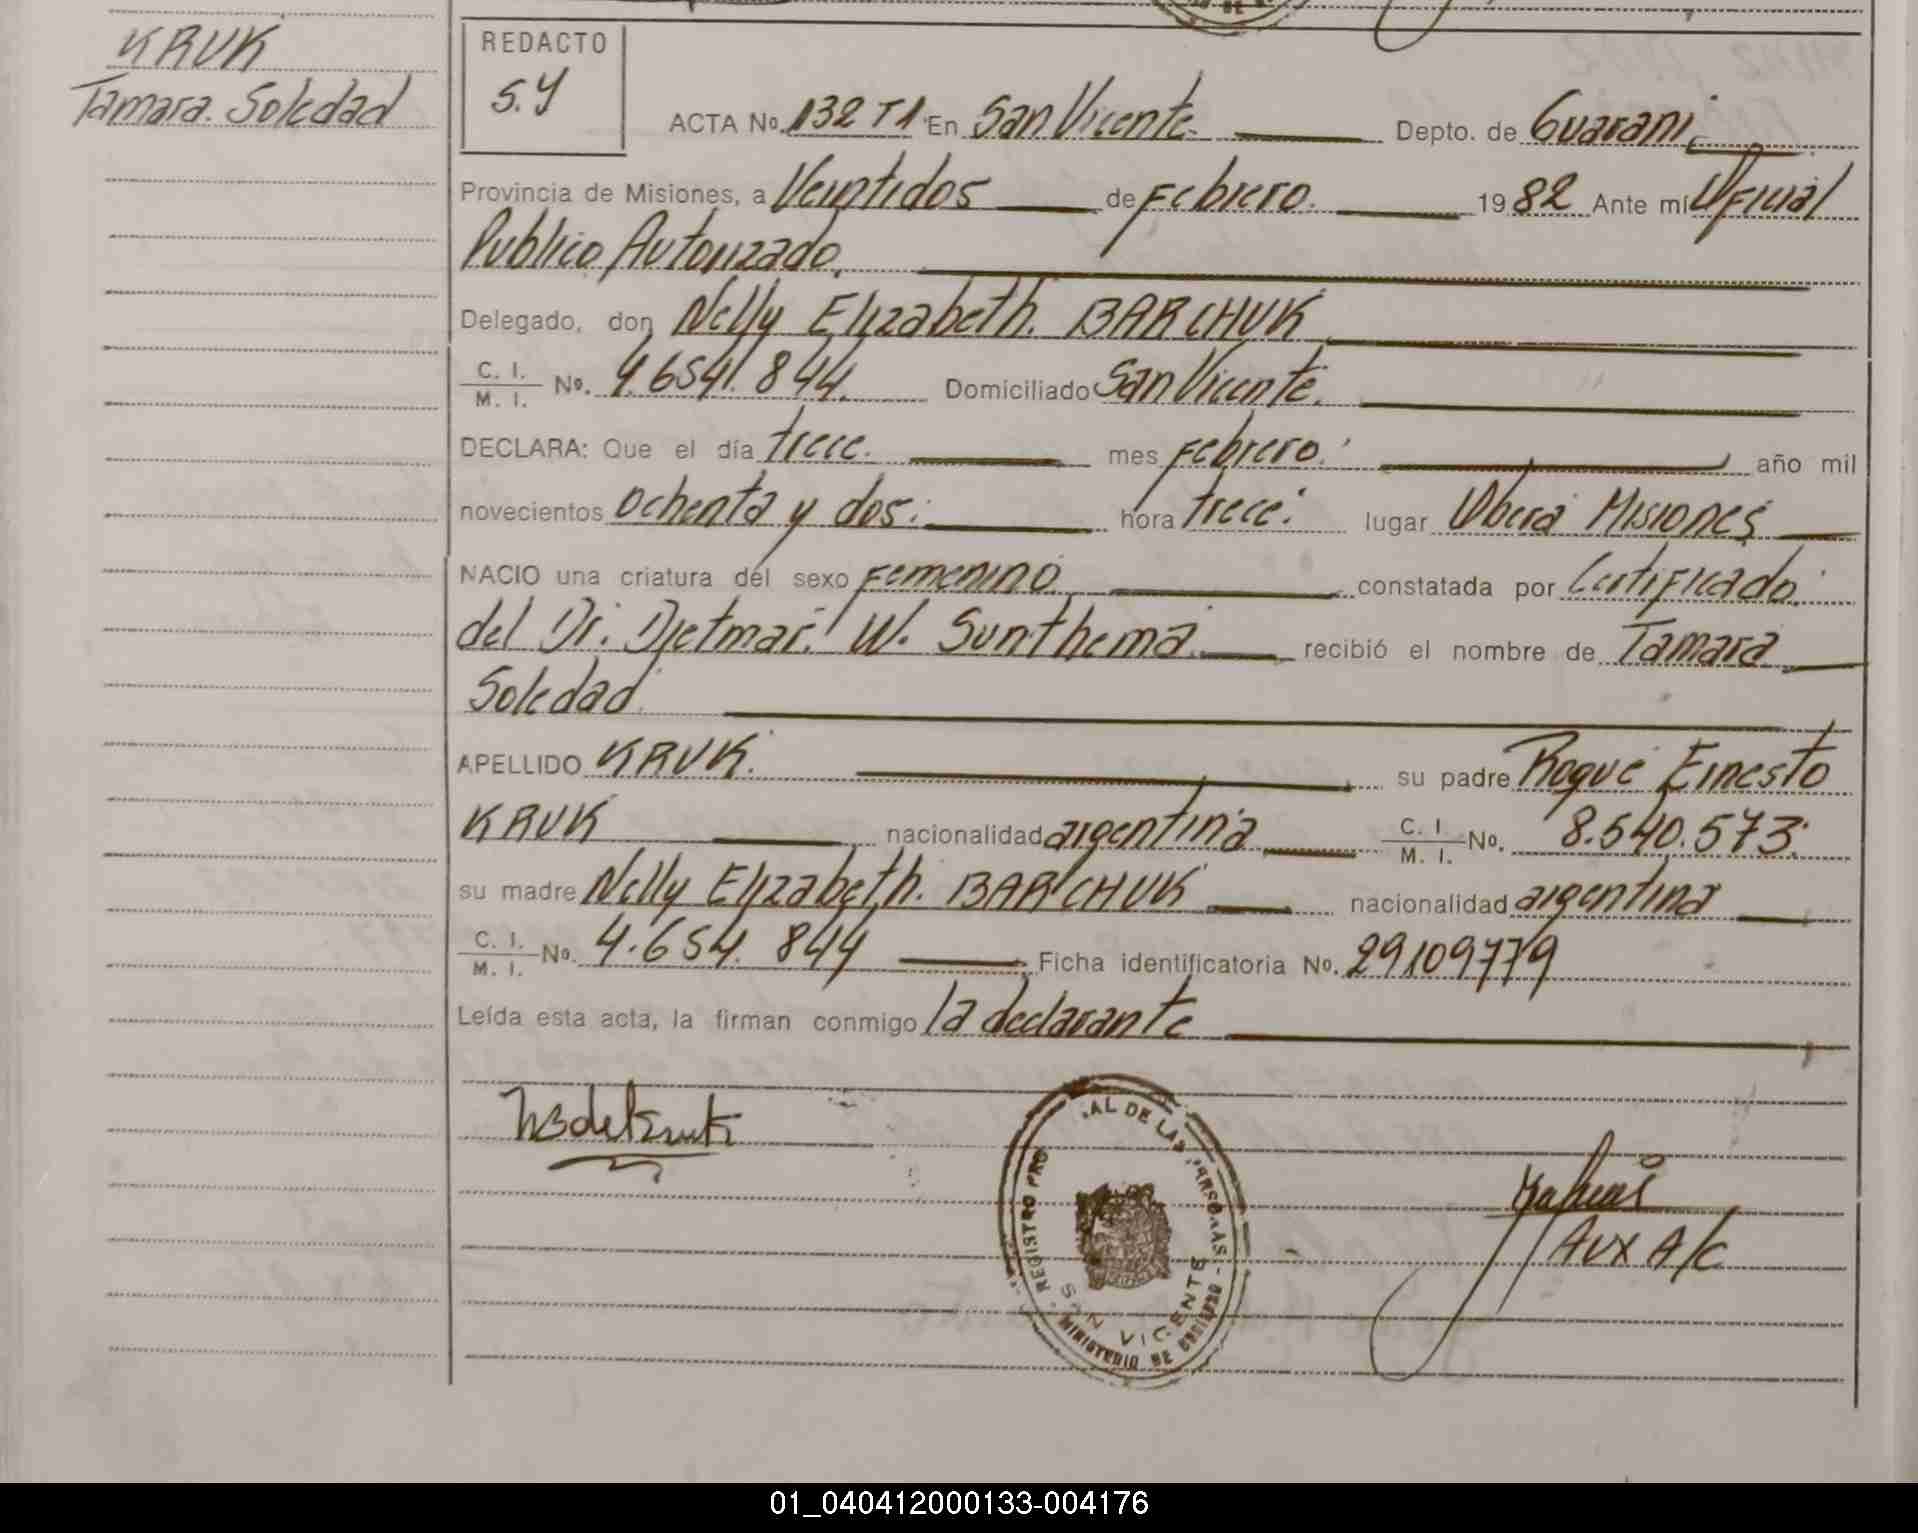 KRUK
Tamara. Soledad
REDACTO
S.Y
ACTA No. 132 T1 En San Vicente. Depto. de Guarani
Provincia de Misiones, a Veintidos de Febrero. 1982 Ante mi Oficial
Publico Autorizado.
Delegado, don Nelly Elizabeth. BARCHUK
C. I.
M. I. No. 4.654.844. Domiciliado San Vicente.
DECLARA: Que el día trece. mes Febrero. año mil
novecientos ochenta y dos. hora trece. lugar Oberá Misiones
NACIO una criatura del sexo Femenino. constatada por Certificado
del Dr. Dietmar. W. Sunthema. recibió el nombre de Tamara
Soledad.
APELLIDO KRUK. su padre Roque Ernesto
KRUK nacionalidad argentina C. I.
M. I. No. 8.540.573.
su madre Nelly Elizabeth. BARCHUK nacionalidad argentina
C. I.
M. I. No. 4.654.844 Ficha identificatoria No. 29109779
Leída esta acta, la firman conmigo la declarante
NB de Kruk
REGISTRO AL DE LAS PERSONAS
SAN VICENTE
MINISTERIO DE GOBIERNO
AUX A/C
01_040412000133-004176